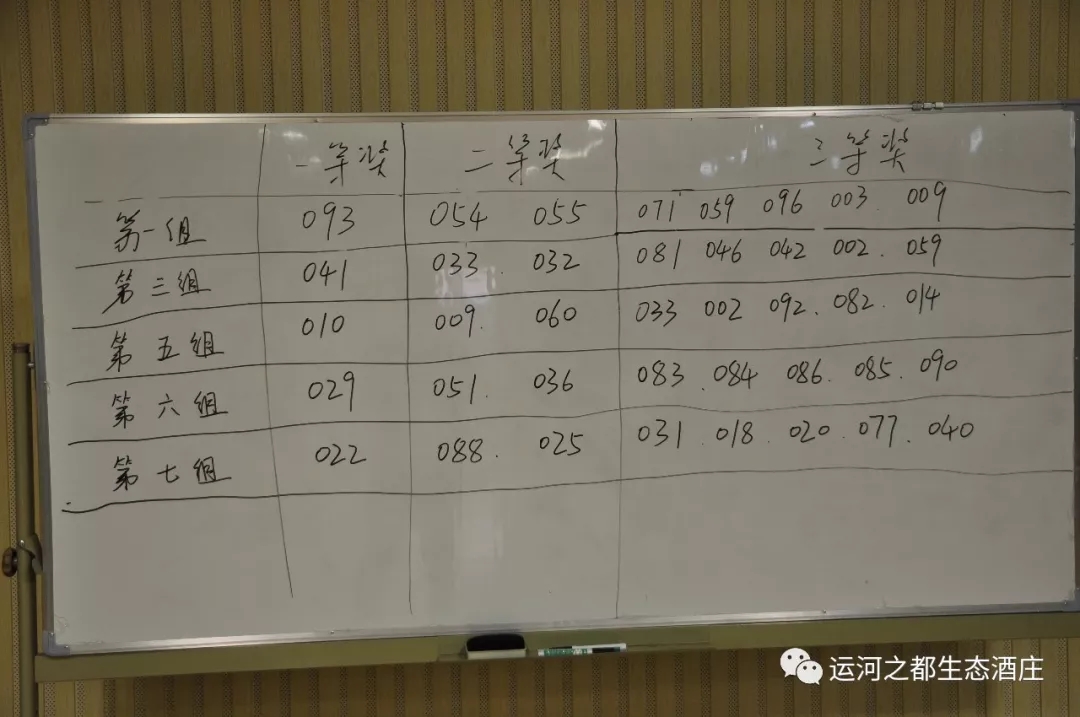 一等奖 二等奖 三等奖
第一组 093 054 055 071 059 096 003. 009
第三组 041 033. 032 081 046 042 002. 059
第五组 010 009. 060 033 002 092. 082. 014
第六组 029 051. 036 083. 084 086. 085. 090
第七组 022 088. 025 031. 018. 020. 077. 040
运河之都生态酒庄